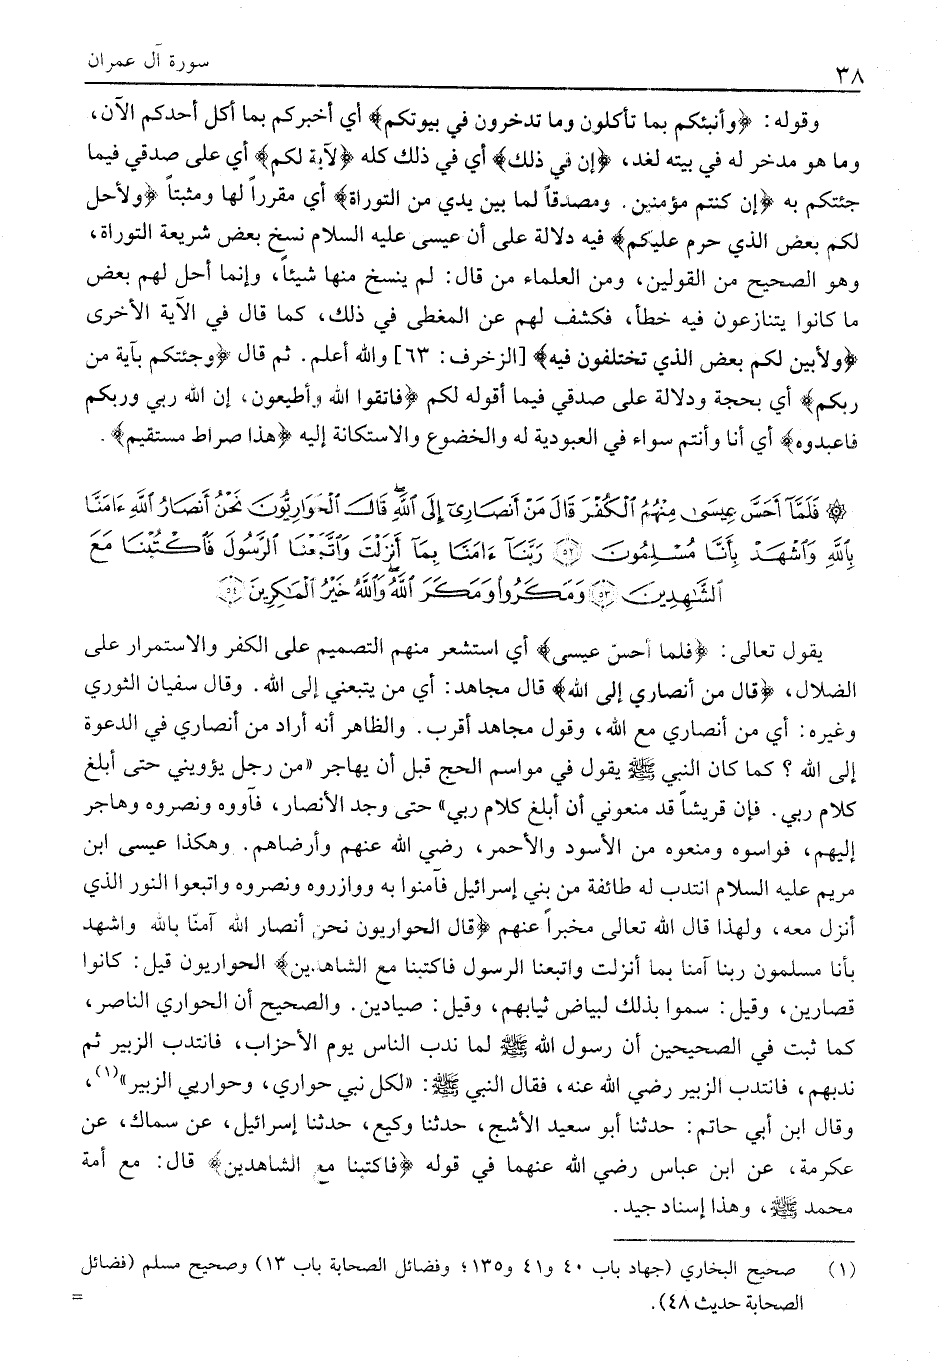 ٣٨
سورة آل عمران
وقوله: ﴿وأنبئكم بما تأكلون وما تدخرون في بيوتكم﴾ أي أخبركم بما أكل أحدكم الآن،
وما هو مدخر له في بيته لغد، ﴿إن في ذلك﴾ أي في ذلك كله ﴿لآية لكم﴾ أي على صدقي فيما
جئتكم به ﴿إن كنتم مؤمنين. ومصدقاً لما بين يدي من التوراة﴾ أي مقرراً لها ومثبتاً ﴿ولأحل
لكم بعض الذي حرم عليكم﴾ فيه دلالة على أن عيسى عليه السلام نسخ بعض شريعة التوراة،
وهو الصحيح من القولين، ومن العلماء من قال: لم ينسخ منها شيئاً، وإنما أحل لهم بعض
ما كانوا يتنازعون فيه خطأ، فكشف لهم عن المغطى في ذلك، كما قال في الآية الأخرى
﴿ولأبين لكم بعض الذي تختلفون فيه﴾ [الزخرف: ٦٣] والله أعلم. ثم قال ﴿وجئتكم بآية من
ربكم﴾ أي بحجة ودلالة على صدقي فيما أقوله لكم ﴿فاتقوا الله وأطيعون، إن الله ربي وربكم
فاعبدوه﴾ أي أنا وأنتم سواء في العبودية له والخضوع والاستكانة إليه ﴿هذا صراط مستقيم﴾.
۞ فَلَمَّآ أَحَسَّ عِيسَىٰ مِنْهُمُ ٱلْكُفْرَ قَالَ مَنْ أَنصَارِىٓ إِلَى ٱللَّهِ ۖ قَالَ ٱلْحَوَارِيُّونَ نَحْنُ أَنصَارُ ٱللَّهِ ءَامَنَّا
بِٱللَّهِ وَٱشْهَدْ بِأَنَّا مُسْلِمُونَ ﴿٥٢﴾ رَبَّنَآ ءَامَنَّا بِمَآ أَنزَلْتَ وَٱتَّبَعْنَا ٱلرَّسُولَ فَٱكْتُبْنَا مَعَ
ٱلشَّٰهِدِينَ ﴿٥٣﴾ وَمَكَرُوا۟ وَمَكَرَ ٱللَّهُ ۖ وَٱللَّهُ خَيْرُ ٱلْمَٰكِرِينَ ﴿٥٤﴾
يقول تعالى: ﴿فلما أحسّ عيسى﴾ أي استشعر منهم التصميم على الكفر والاستمرار على
الضلال، ﴿قال من أنصاري إلى الله﴾ قال مجاهد: أي من يتبعني إلى الله. وقال سفيان الثوري
وغيره: أي من أنصاري مع الله، وقول مجاهد أقرب. والظاهر أنه أراد من أنصاري في الدعوة
إلى الله ؟ كما كان النبي ﷺ يقول في مواسم الحج قبل أن يهاجر «من رجل يؤويني حتى أبلغ
كلام ربي. فإن قريشاً قد منعوني أن أبلغ كلام ربي» حتى وجد الأنصار، فآووه ونصروه وهاجر
إليهم، فواسوه ومنعوه من الأسود والأحمر، رضي الله عنهم وأرضاهم. وهكذا عيسى ابن
مريم عليه السلام انتدب له طائفة من بني إسرائيل فآمنوا به ووازروه ونصروه واتبعوا النور الذي
أنزل معه، ولهذا قال الله تعالى مخبراً عنهم ﴿قال الحواريون نحن أنصار الله آمنّا بالله واشهد
بأنا مسلمون ربنا آمنا بما أنزلت واتبعنا الرسول فاكتبنا مع الشاهدين﴾ الحواريون قيل: كانوا
قصارين، وقيل: سموا بذلك لبياض ثيابهم، وقيل: صيادين. والصحيح أن الحواري الناصر،
كما ثبت في الصحيحين أن رسول الله ﷺ لما ندب الناس يوم الأحزاب، فانتدب الزبير ثم
ندبهم، فانتدب الزبير رضي الله عنه، فقال النبي ﷺ: «لكل نبي حواري، وحواريي الزبير»(١)،
وقال ابن أبي حاتم: حدثنا أبو سعيد الأشج، حدثنا وكيع، حدثنا إسرائيل، عن سماك، عن
عكرمة، عن ابن عباس رضي الله عنهما في قوله ﴿فاكتبنا مع الشاهدين﴾ قال: مع أمة
محمد ﷺ، وهذا إسناد جيد.
(١) صحيح البخاري (جهاد باب ٤٠ و٤١ و١٣٥؛ وفضائل الصحابة باب ١٣) وصحيح مسلم (فضائل
الصحابة حديث ٤٨). =